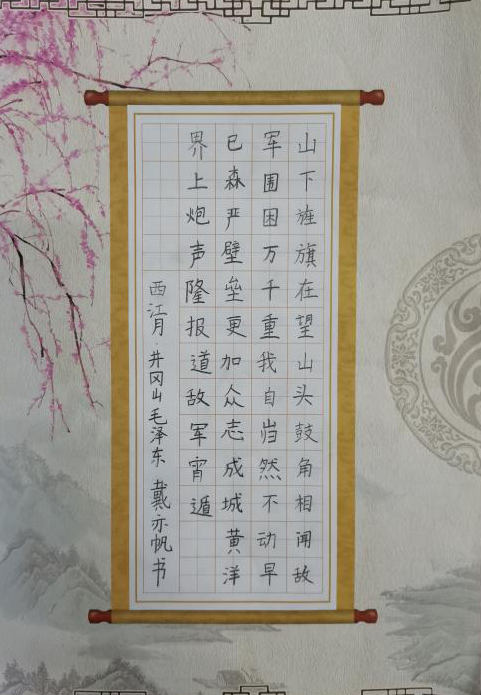 山下旌旗在望山头鼓角相闻敌
军围困万千重我自岿然不动早
已森严壁垒更加众志成城黄洋
界上炮声隆报道敌军宵遁
西江月·井冈山毛泽东 戴亦帆书